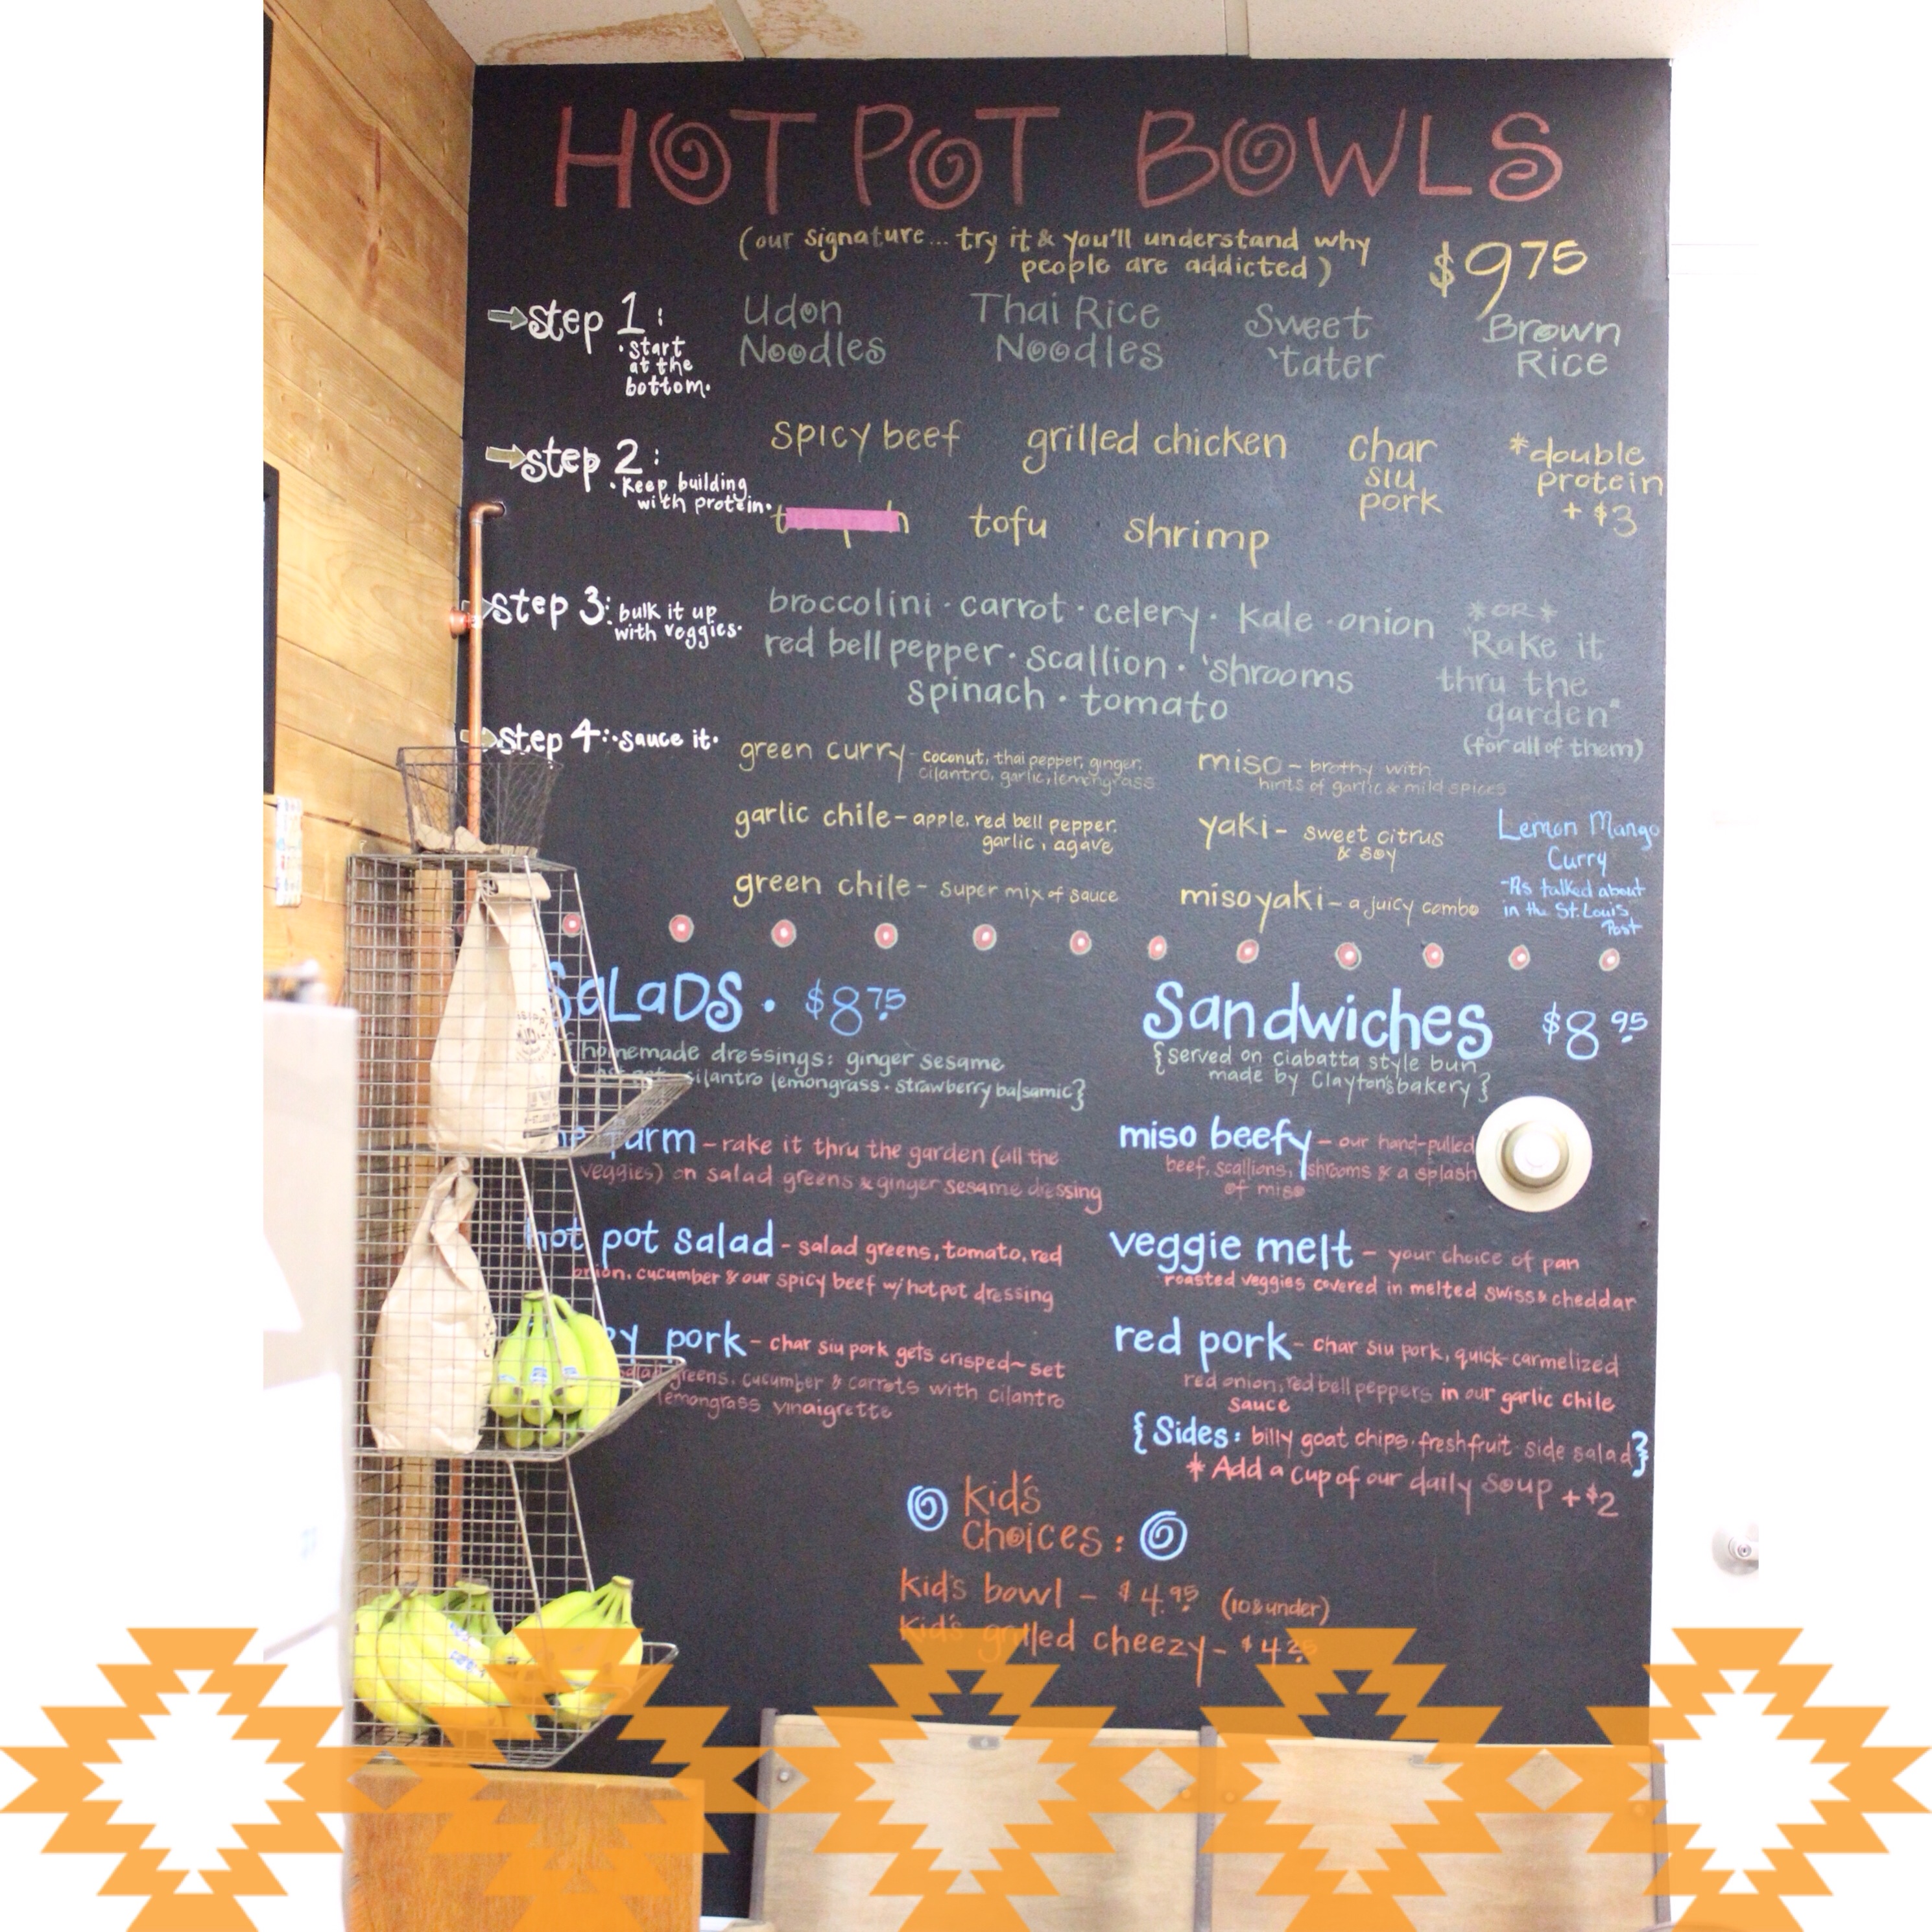 HOT POT BOWLS
(our signature... try it & you'll understand why
people are addicted)
$9 75
step 1:
• start
at the
bottom.
Udon
Noodles
Thai Rice
Noodles
Sweet
'tater
Brown
Rice
step 2:
• Keep building
with protein.
spicy beef
grilled chicken
char
siu
pork
*double
protein
+ $3
tofu
shrimp
step 3: bulk it up
with veggies.
broccolini · carrot · celery · kale · onion
red bell pepper · scallion · 'shrooms
spinach · tomato
*OR*
"Rake it
thru the
garden"
(for all of them)
step 4: • sauce it.
green curry - coconut, thai pepper, ginger,
cilantro, garlic, lemongrass
garlic chile - apple, red bell pepper,
garlic, agave
green chile - super mix of sauce
miso - brothy with
hints of garlic & mild spices
yaki - sweet citrus
& soy
misoyaki - a juicy combo
Lemon Mango
Curry
- As talked about
in the St. Louis
Post
SaLaDS • $8 75
homemade dressings: ginger sesame
cilantro lemongrass · strawberry balsamic}
farm - rake it thru the garden (all the
veggies) on salad greens & ginger sesame dressing
hot pot salad - salad greens, tomato, red
onion, cucumber & our spicy beef w/ hot pot dressing
pork - char siu pork gets crisped ~ set
salad greens, cucumber & carrots with cilantro
lemongrass vinaigrette
Sandwiches $8 95
{served on ciabatta style bun
made by Clayton's bakery}
miso beefy - our hand-pulled
beef, scallions, 'shrooms & a splash
of miso
veggie melt - your choice of pan
roasted veggies covered in melted swiss & cheddar
red pork - char siu pork, quick-carmelized
red onion, red bell peppers in our garlic chile
sauce
{Sides: billy goat chips · fresh fruit · side salad}
* Add a cup of our daily soup + $2
Kid's
Choices:
Kid's bowl - $4.95 (10 & under)
Kid's grilled cheezy - $4.25